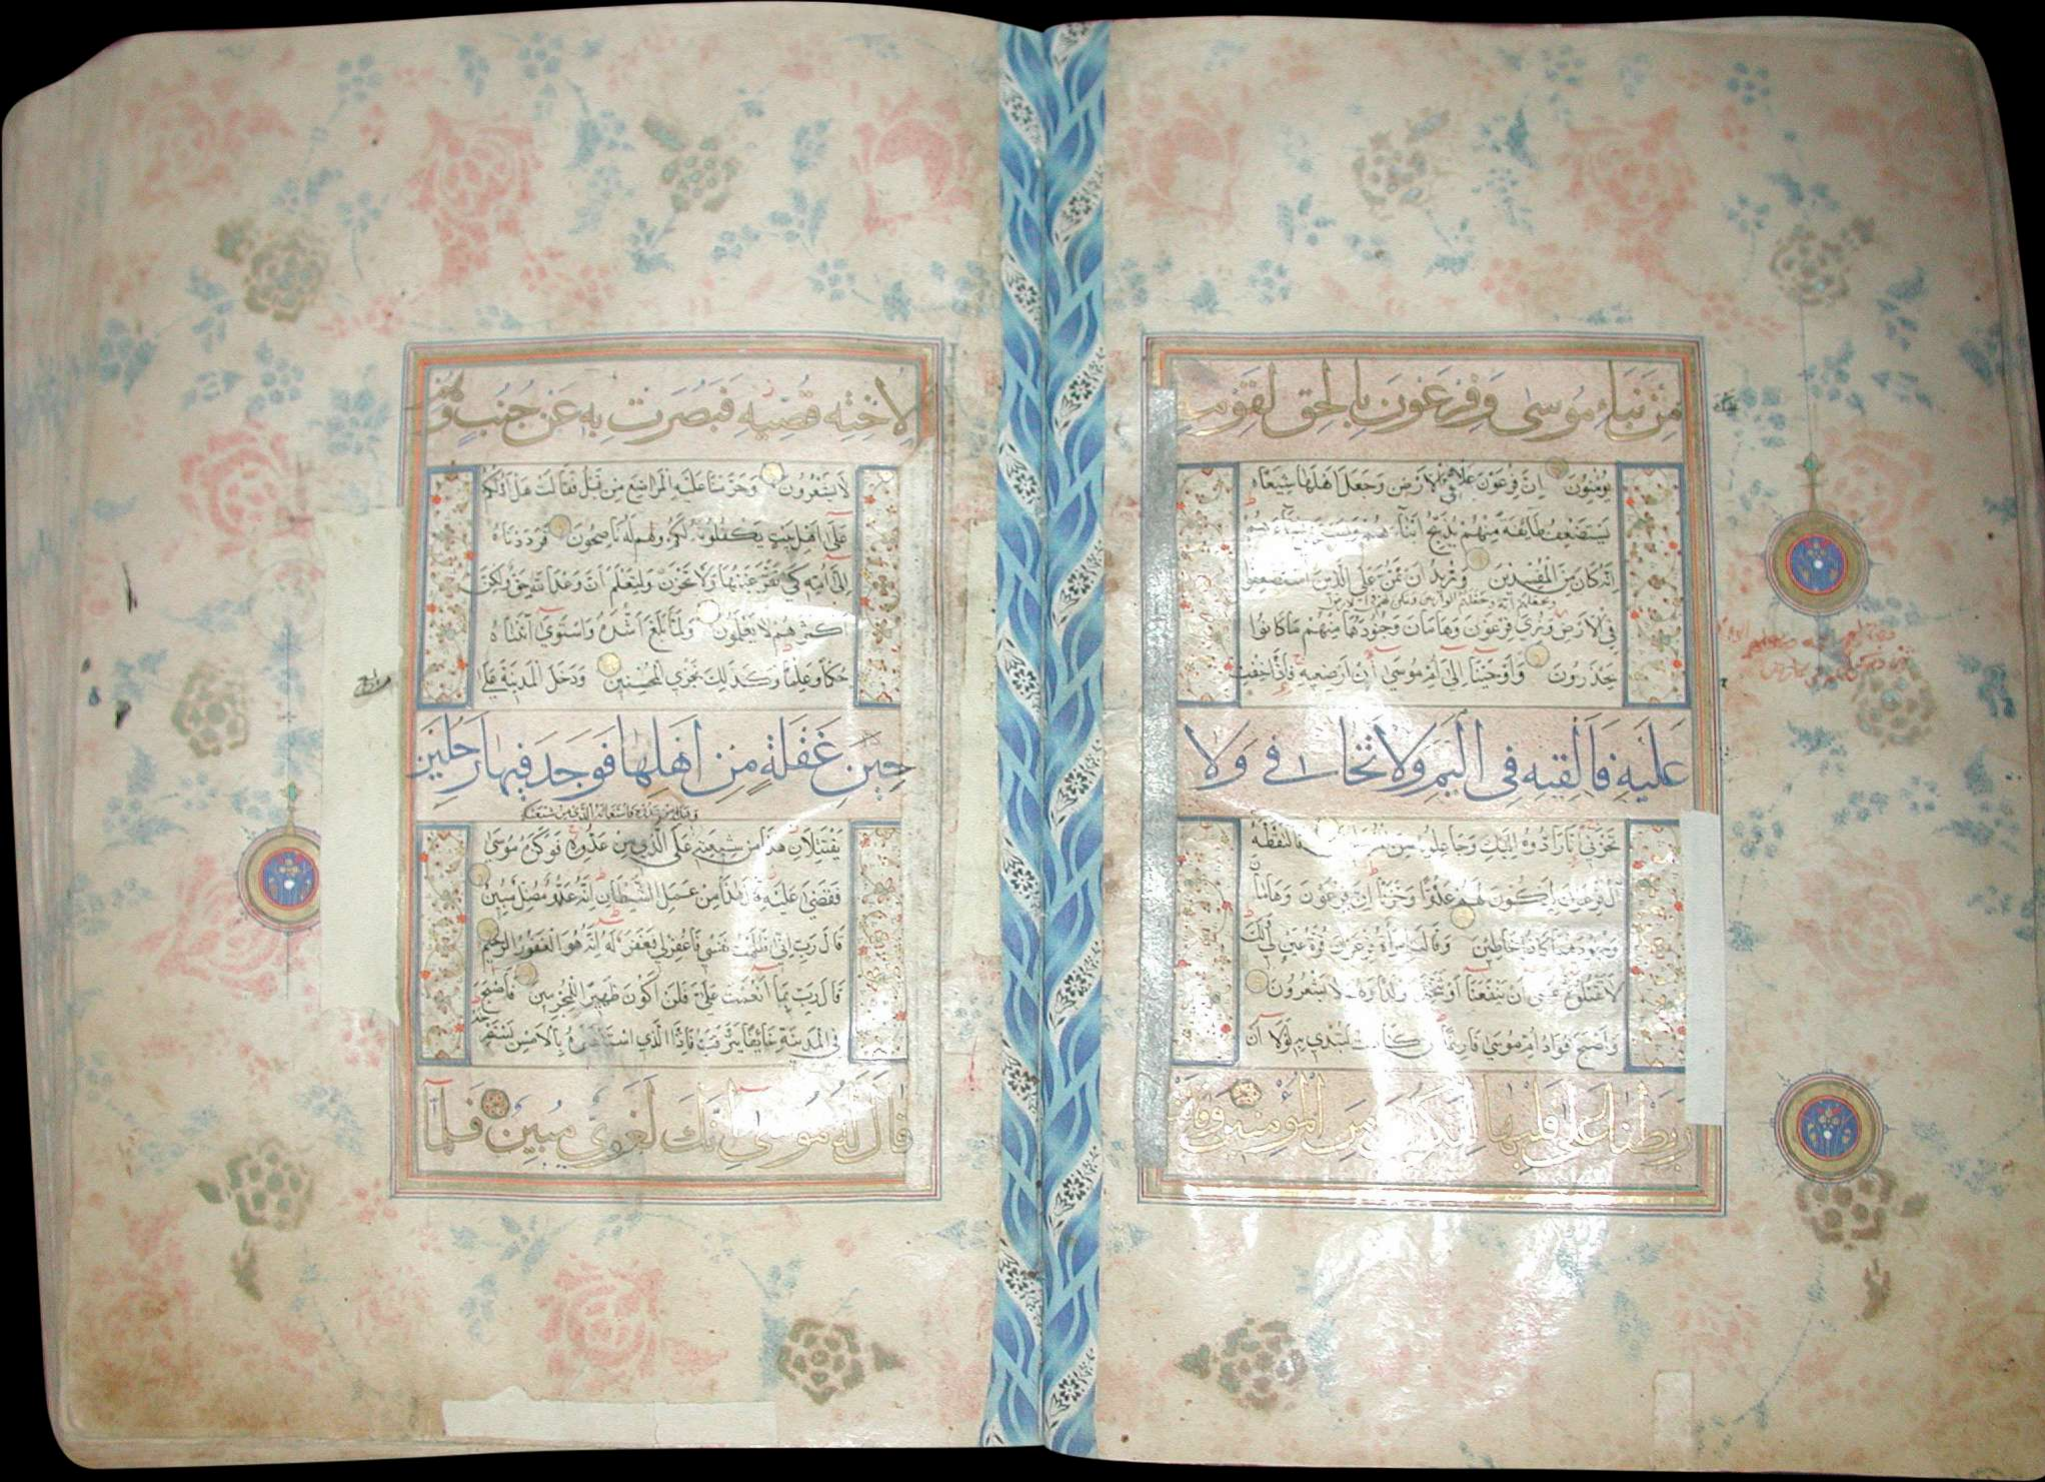 مِنْ نَبَاءِ مُوسٰى وَفِرْعَوْنَ بِالْحَقِّ لِقَوْمٍ
يُؤْمِنُونَ اِنَّ فِرْعَوْنَ عَلَا فِي الْاَرْضِ وَجَعَلَ اَهْلَهَا شِيَعًا
يَسْتَضْعِفُ طَآئِفَةً مِنْهُمْ يُذَبِّحُ اَبْنَآءَهُمْ وَيَسْتَحْيِي نِسَآءَهُمْ
اِنَّهُ كَانَ مِنَ الْمُفْسِدِينَ وَنُرِيدُ اَنْ نَمُنَّ عَلَى الَّذِينَ اسْتُضْعِفُوا
فِي الْاَرْضِ وَنُرِيَ فِرْعَوْنَ وَهَامَانَ وَجُنُودَهُمَا مِنْهُمْ مَا كَانُوا
يَحْذَرُونَ وَاَوْحَيْنَا اِلٰى اُمِّ مُوسٰى اَنْ اَرْضِعِيهِ فَاِذَا خِفْتِ
عَلَيْهِ فَاَلْقِيهِ فِي الْيَمِّ وَلَا تَخَافِي وَلَا
تَحْزَنِي اِنَّا رَادُّوهُ اِلَيْكِ وَجَاعِلُوهُ مِنَ فَالْتَقَطَهُ
اٰلُ فِرْعَوْنَ لِيَكُونَ لَهُمْ عَدُوًّا وَحَزَنًا اِنَّ فِرْعَوْنَ وَهَامَانَ
وَجُنُودَهُمَا كَانُوا خَاطِئِينَ وَقَالَتِ امْرَاَةُ فِرْعَوْنَ قُرَّةُ عَيْنٍ لِي وَلَكَ
لَا تَقْتُلُوهُ عَسٰى اَنْ يَنْفَعَنَا اَوْ نَتَّخِذَهُ وَلَدًا وَهُمْ لَا يَشْعُرُونَ
وَاَصْبَحَ فُؤَادُ اُمِّ مُوسٰى فَارِغًا اِنْ كَادَتْ لَتُبْدِي بِهِ لَوْلَا اَنْ
رَبَطْنَا عَلٰى قَلْبِهَا لِتَكُونَ مِنَ الْمُؤْمِنِينَ وَقَالَتْ
لِاُخْتِهِ قُصِّيهِ فَبَصُرَتْ بِهِ عَنْ جُنُبٍ وَهُمْ
لَا يَشْعُرُونَ وَحَرَّمْنَا عَلَيْهِ الْمَرَاضِعَ مِنْ قَبْلُ فَقَالَتْ هَلْ اَدُلُّكُمْ
عَلٰى اَهْلِ بَيْتٍ يَكْفُلُونَهُ لَكُمْ وَهُمْ لَهُ نَاصِحُونَ فَرَدَدْنَاهُ
اِلٰى اُمِّهِ كَيْ تَقَرَّ عَيْنُهَا وَلَا تَحْزَنَ وَلِتَعْلَمَ اَنَّ وَعْدَ اللّٰهِ حَقٌّ وَلٰكِنَّ
اَكْثَرَهُمْ لَا يَعْلَمُونَ وَلَمَّا بَلَغَ اَشُدَّهُ وَاسْتَوٰى اٰتَيْنَاهُ
حُكْمًا وَعِلْمًا وَكَذٰلِكَ نَجْزِي الْمُحْسِنِينَ وَدَخَلَ الْمَدِينَةَ عَلٰى
حِينِ غَفْلَةٍ مِنْ اَهْلِهَا فَوَجَدَ فِيهَا رَجُلَيْنِ
يَقْتَتِلَانِ هٰذَا مِنْ شِيعَتِهِ عَلَى الَّذِي مِنْ عَدُوِّهِ فَوَكَزَهُ مُوسٰى
فَقَضٰى عَلَيْهِ قَالَ هٰذَا مِنْ عَمَلِ الشَّيْطَانِ اِنَّهُ عَدُوٌّ مُضِلٌّ مُبِينٌ
قَالَ رَبِّ اِنِّي ظَلَمْتُ نَفْسِي فَاغْفِرْ لِي فَغَفَرَ لَهُ اِنَّهُ هُوَ الْغَفُورُ الرَّحِيمُ
قَالَ رَبِّ بِمَا اَنْعَمْتَ عَلَيَّ فَلَنْ اَكُونَ ظَهِيرًا لِلْمُجْرِمِينَ فَاَصْبَحَ
فِي الْمَدِينَةِ خَائِفًا يَتَرَقَّبُ فَاِذَا الَّذِي اسْتَنْصَرَهُ بِالْاَمْسِ يَسْتَصْرِخُهُ
قَالَ لَهُ مُوسٰى اِنَّكَ لَغَوِيٌّ مُبِينٌ فَلَمَّآ